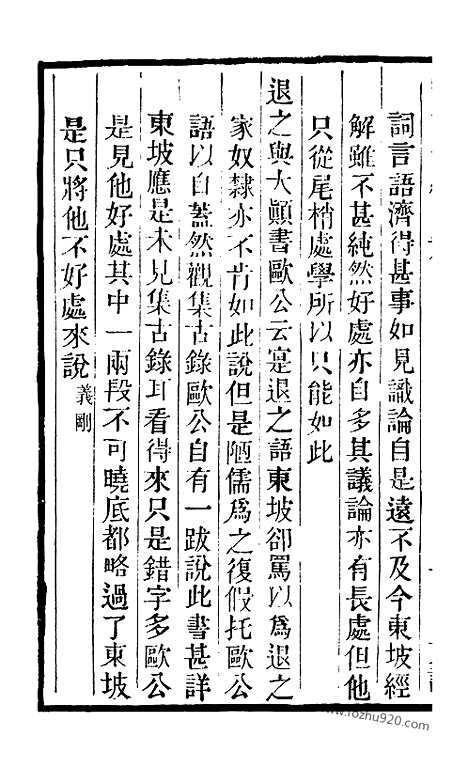 詞言語濟得甚事如見識論自是遠不及今東坡經
解雖不甚純然好處亦自多其議論亦有長處但他
只從尾梢處學所以只能如此
退之與大顛書歐公云寔退之語東坡卻罵以為退之
家奴隸亦不肯如此說但是陋儒爲之復假托歐公
語以自蓋然觀集古錄歐公自有一跋說此書甚詳
東坡應是未見集古錄耳看得來只是錯字多歐公
是見他好處其中一兩段不可曉底都略過了東坡
是只將他不好處來說義剛
www.fozhu920.com